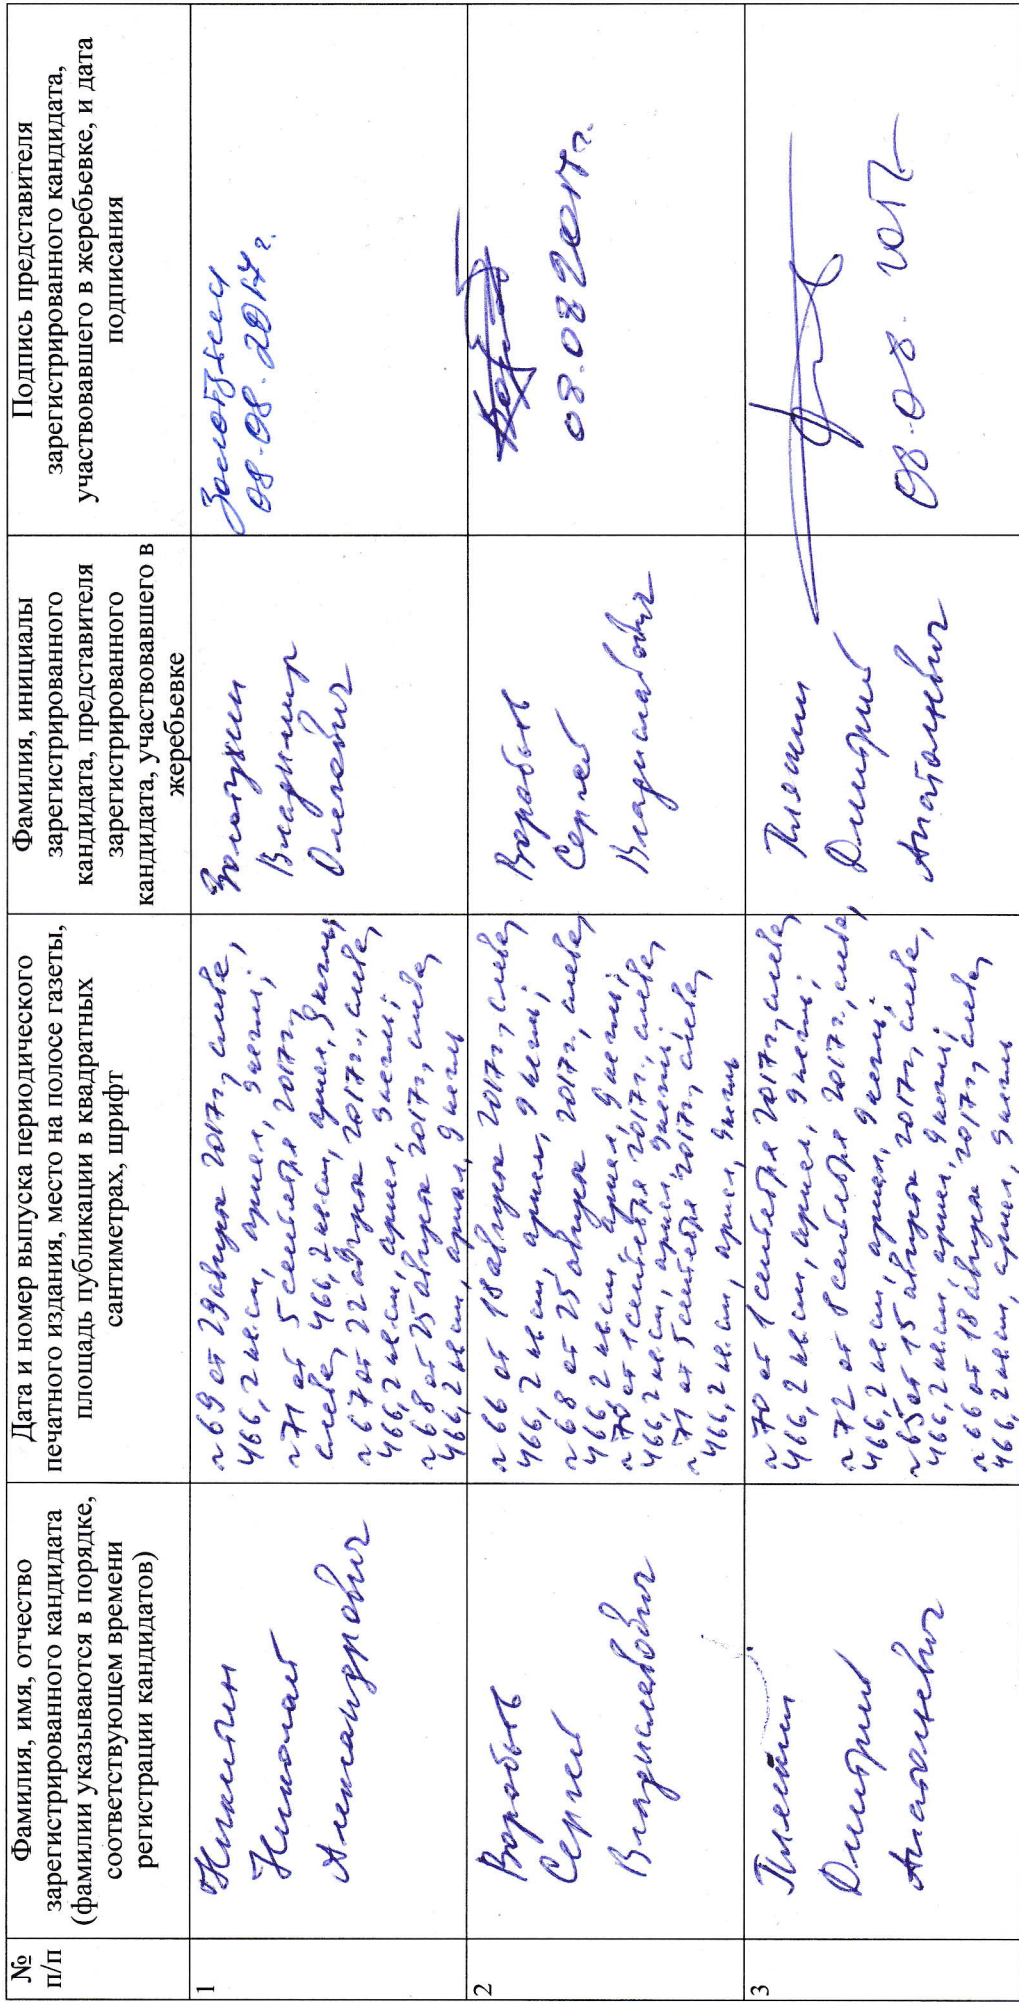 №
п/п
Фамилия, имя, отчество
зарегистрированного кандидата
(фамилии указываются в порядке,
соответствующем времени
регистрации кандидатов)
Дата и номер выпуска периодического
печатного издания, место на полосе газеты,
площадь публикации в квадратных
сантиметрах, шрифт
Фамилия, инициалы
зарегистрированного
кандидата, представителя
зарегистрированного
кандидата, участвовавшего в
жеребьевке
Подпись представителя
зарегистрированного кандидата,
участвовавшего в жеребьевке, и дата
подписания
1
Никитин
Николай
Александрович
№ 69 от 29 августа 2017г, слева,
466,2 кв см, ариал, 9 кегль;
№ 71 от 5 сентября 2017г,
слева, 466,2 кв см, ариал, 9 кегль;
№ 67 от 22 августа 2017г., слева,
466,2 кв см, ариал, 9 кегль;
№ 68 от 25 августа 2017г, слева,
466,2 кв см, ариал, 9 кегль
Золотухин
Владимир
Олегович
08.08.2017г.
2
Воробьев
Сергей
Владиславович
№ 66 от 18 августа 2017г, слева,
466,2 кв см, ариал, 9 кегль;
№ 68 от 25 августа 2017г, слева,
466,2 кв см, ариал, 9 кегль;
№ 70 от 1 сентября 2017г., слева,
466,2 кв.см, ариал, 9 кегль;
№ 71 от 5 сентября 2017г, слева,
466,2 кв.см, ариал, 9 кегль
Воробьев
Сергей
Владиславович
08.08 2017г.
3
Дмитрий
Анатольевич
№ 70 от 1 сентября 2017г, слева,
466,2 кв см, ариал, 9 кегль;
№ 72 от 8 сентября 2017г., слева,
466,2 кв см, ариал, 9 кегль;
№ 65 от 15 августа 2017г, слева,
466,2 кв см, ариал, 9 кегль;
№ 66 от 18 августа 2017г, слева,
466,2 кв см, ариал, 9 кегль
Дмитрий
Анатольевич
08.08.2017г